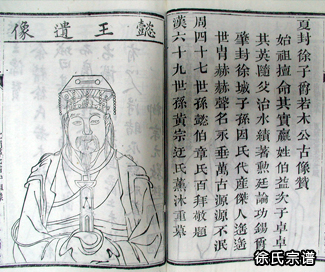 夏封徐子爵若木公古像贊
始祖擅命其實嬴姓伯益次子卓卓
其英隨父治水績著廷論功錫爵
肇封徐城子孫因氏代產傑人遙遙
世胄赫赫聲名永垂萬古源源不泯
周四十七世孫懿伯章氏百拜敬題
漢六十九世孫黃宗氏薰沐重摹
懿王遺像
徐氏宗谱